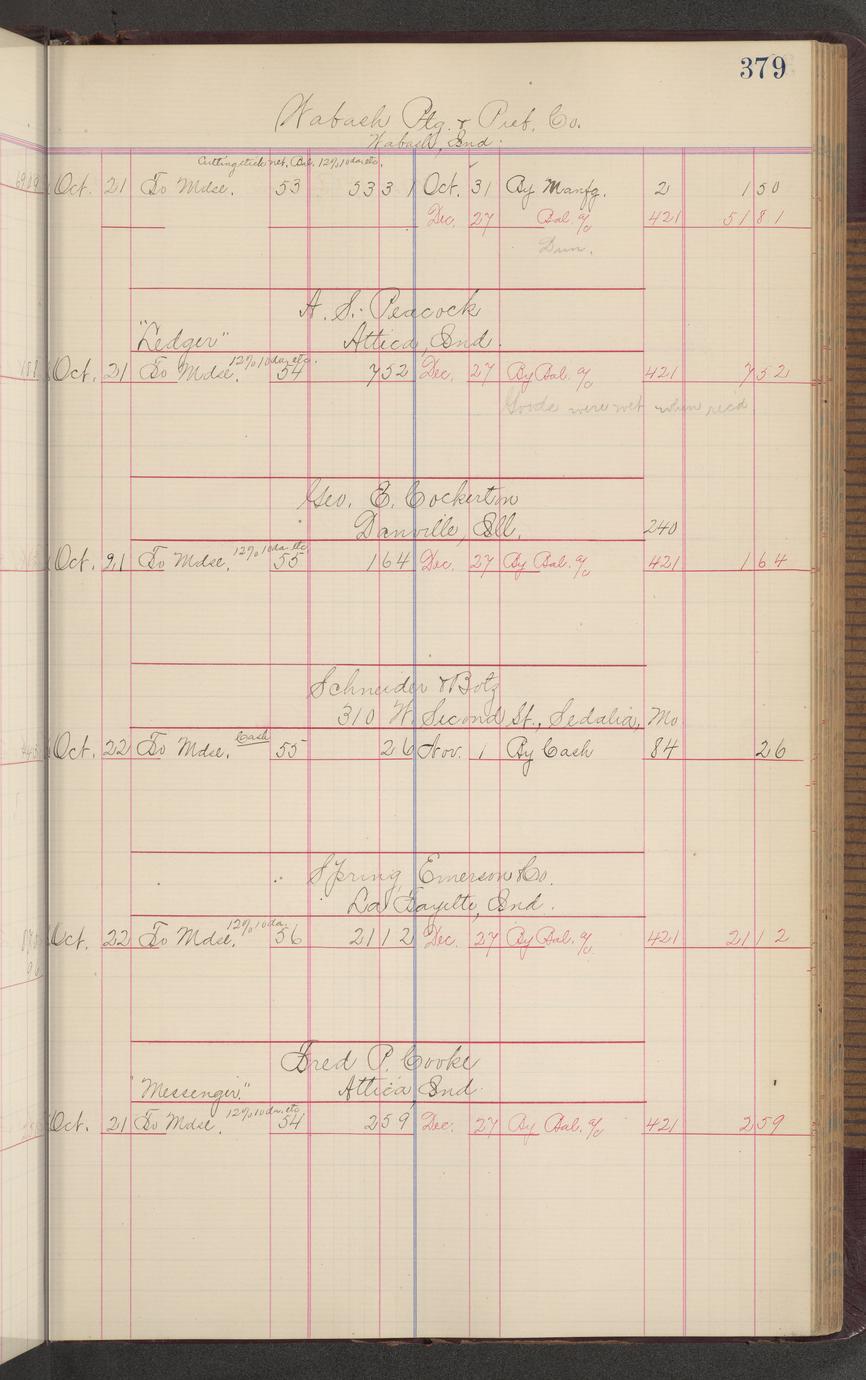 379
Wabash Ptg. & Pub. Co.
Wabash, Ind.
Cutting stick net, Bal. 12%, 10 da. etc.
Oct. 21 To Mdse. 53 53 31 Oct. 31 By Manfg. 2 1 50
Dec. 27 Bal. a/c 421 51 81
Dun.
A. S. Peacock
"Ledger" Attica, Ind.
Oct. 21 To Mdse. 12%, 10 da. etc. 54 7 52 Dec. 27 By Bal. a/c 421 7 52
Goods were wet when rec'd
Geo. E. Cockerton
Danville, Ill. 240
Oct. 21 To Mdse. 12%, 10 da. etc. 55 1 64 Dec. 27 By Bal. a/c 421 1 64
Schneider & Botz
310 W. Second St., Sedalia, Mo
Oct. 22 To Mdse. Cash 55 26 Nov. 1 By Cash 84 26
Spring, Emerson & Co.
La Fayette, Ind.
Oct. 22 To Mdse. 12%, 10 da. 56 21 12 Dec. 27 By Bal. a/c 421 21 12
Fred P. Cooke
"Messenger." Attica, Ind.
Oct. 21 To Mdse. 12%, 10 da. etc. 54 2 59 Dec. 27 By Bal. a/c 421 2 59